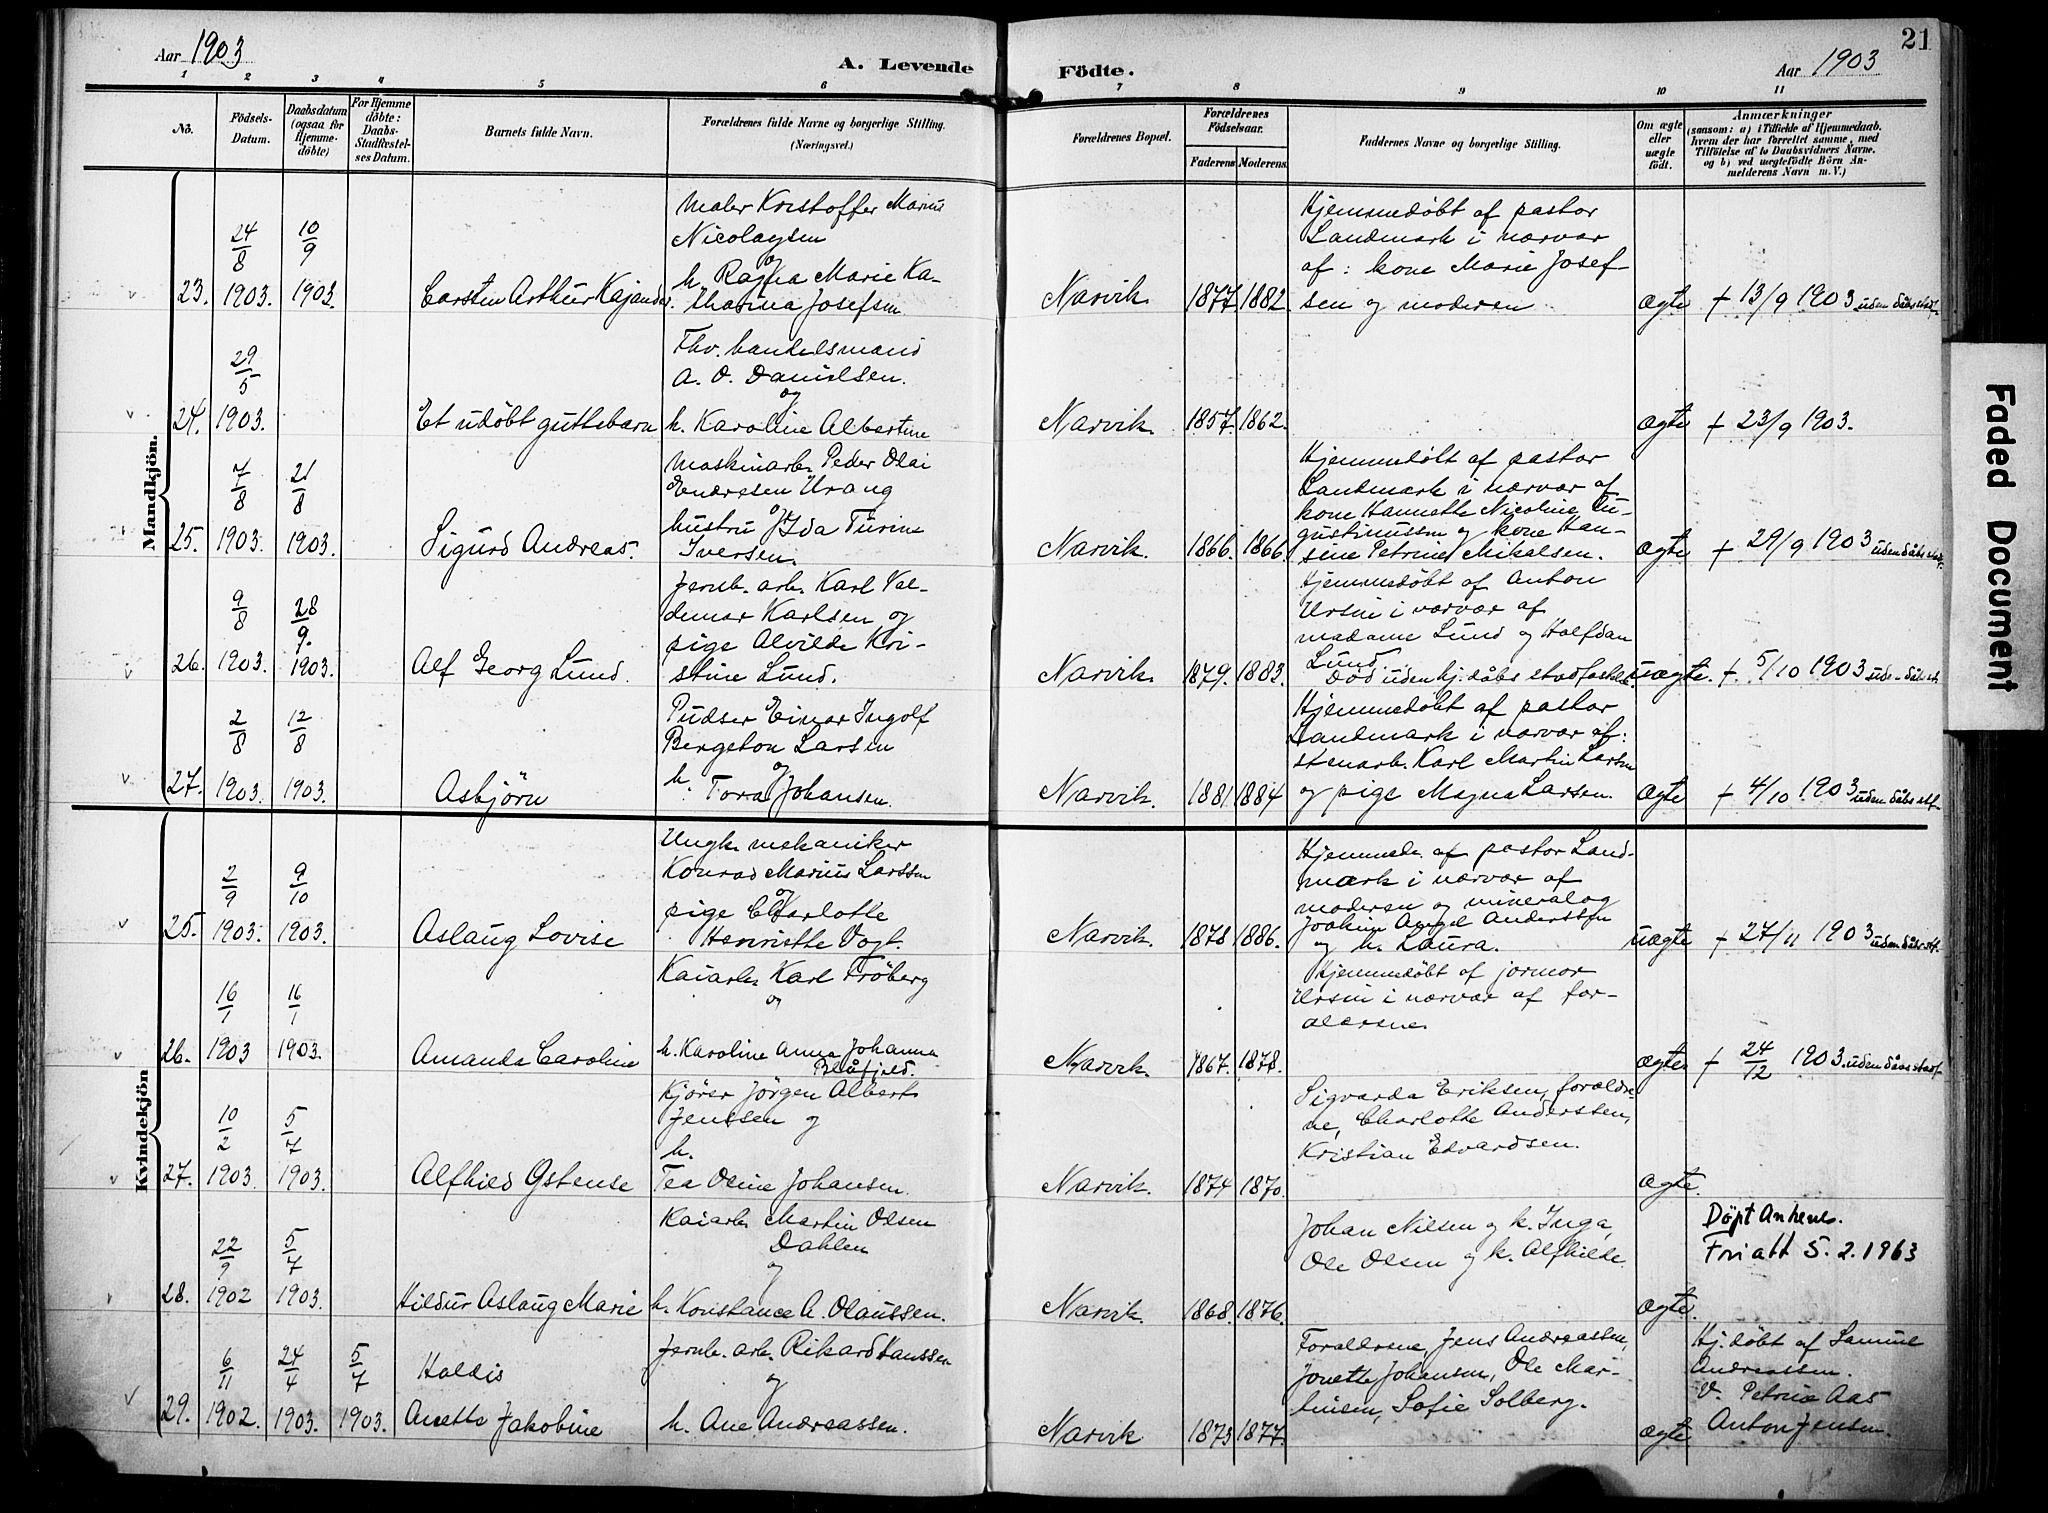 Aar 1903
A. Levende Födte.
Aar 1903
21
1 2 3 4 5 6 7 8 9 10 11
No.
Födsels-
Datum.
Daabsdatum
(ogsaa for
Hjemme-
döbte)
For Hjemme
döbte:
Daabs-
Stadfæstel-
ses Datum.
Barnets fulde Navn.
Forældrenes fulde Navne og borgerlige Stilling.
(Næringsvei.)
Forældrenes Bopæl.
Forældrenes
Födselsaar.
Faderens
Moderens
Faddernes Navne og borgerlige Stilling.
Om ægte
eller
uægte
födt.
Anmærkninger
(saasom: a) i Tilfælde af Hjemmedaab.
hvem der har forrettet samme, med
Tilföielse af to Daabsvidners Navne.
og b) ved uægtefödte Börn An-
melderens Navn m. V.)
Mandkjön.
23.
24/8
1903.
10/9
1903.
Carsten Arthur Kajander
Maler Kristoffer Marius
Nicolaysen
og
h. Ragna Marie Ka-
tharina Josefsen
Narvik
1877.
1882.
Hjemmedøbt af pastor
Landmark i nærvær
af: kone Marie Josef-
sen og moderen
ægte
+ 13/9 1903 uden dåbs stadf.
24.
29/5
1903.
Et udöbt guttebarn
Fhv. handelsmand
A. O. Danielsen.
og
h. Karoline Albertine
Narvik.
1857.
1862.
ægte
+ 23/9 1903.
25.
7/8
1903.
21/8
1903.
Sigurd Andreas.
Maskinarb. Peder Olai
Endresen Urang
og
hustru Ida Turine
Iversen.
Narvik.
1866.
1866.
Hjemmedøbt af pastor
Landmark i nærvær af
kone Hannette Nicoline Au-
gustinussen og kone Han-
sine Petrine Mikalsen.
ægte
+ 29/9 1903 uden dåbs stadf.
26.
9/8
1903.
28/9.
1903.
Alf Georg Lund.
Jernb. arb. Karl Val-
demar Karlsen og
pige Alvilde Kri-
stine Lund.
Narvik.
1879.
1883.
Hjemmedøbt af Anton
Ursin i nærvær af
madame Lund og Halfdan
Lund.
Död uden hj. dåbs stadfæstelse.
uægte.
+ 5/10 1903 uden dåbs st.
27.
2/8
1903.
12/8
1903.
Asbjörn
Pudser Einar Ingolf
Bergeton Larsen
og
h. Tora Johansen.
Narvik.
1881.
1884
Hjemmedøbt af pastor
Landmark i nærvær af:
stenarb. Karl Martin Larsen
og pige Magna Larsen.
ægte
+ 4/10 1903 uden dåbs stf.
Kvindekjön
25.
2/9
1903.
9/10
1903.
Aslaug Lovise
Ungk. mekaniker
Konrad Marius Larssen
og
pige Charlotte
Henriette Vogt.
Narvik.
1878
1886.
Hjemmed. af pastor Land-
mark i nærvær af
moderen og mineralog
Joakim Angel Anderssen
og h. Laura.
uægte
+ 27/11 1903 uden dåbs stf.
26.
16/1
1903
16/1
1903.
Amanda Caroline
Kaiarb. Karl Fröberg
og
h. Karoline Anna Johanna
Blåfjeld.
Narvik.
1867.
1878.
Hjemmedøbt af jormor
Ursin i nærvær af for-
ældrene
ægte
+ 24/12 1903. uden dåbs stadf.
27.
10/2
1903.
5/7
1903.
Alfhild Østense
Kjörer Jörgen Albert
Jenssen og
h.
Tea Oline Johansen.
Narvik.
1874
1870.
Sigvarda Eriksen, forældre-
ne, Charlotte Anderssen,
Kristian Edvardsen.
ægte.
28.
22/9
1902
5/7
1903.
Hildur Aslaug Marie
Kaiarb. Martin Olsen
Dahlen
og
h. Konstance A. Olaussen.
Narvik.
1868.
1876.
Johan Nilsen og k. Inga,
Ole Olsen og k. Alfhilde.
ægte.
Döpt Anhene.
Fri att 5. 2. 1963
29.
6/11
1902.
24/4
1903.
5/7
1903.
Haldis
Anette Jakobine
Jernb. arb. Rikard Hanssen
og
h. Ane Andreassen.
Narvik
1873
1877.
Forældrene, Jens Andreassen,
Jonette Johansen, Ole Mar-
tinsen, Sofie Solberg.
ægte
Hj. döbt af Samuel
Andreassen.
V. Petrine Aas
Anton Jensen.
Faded Document